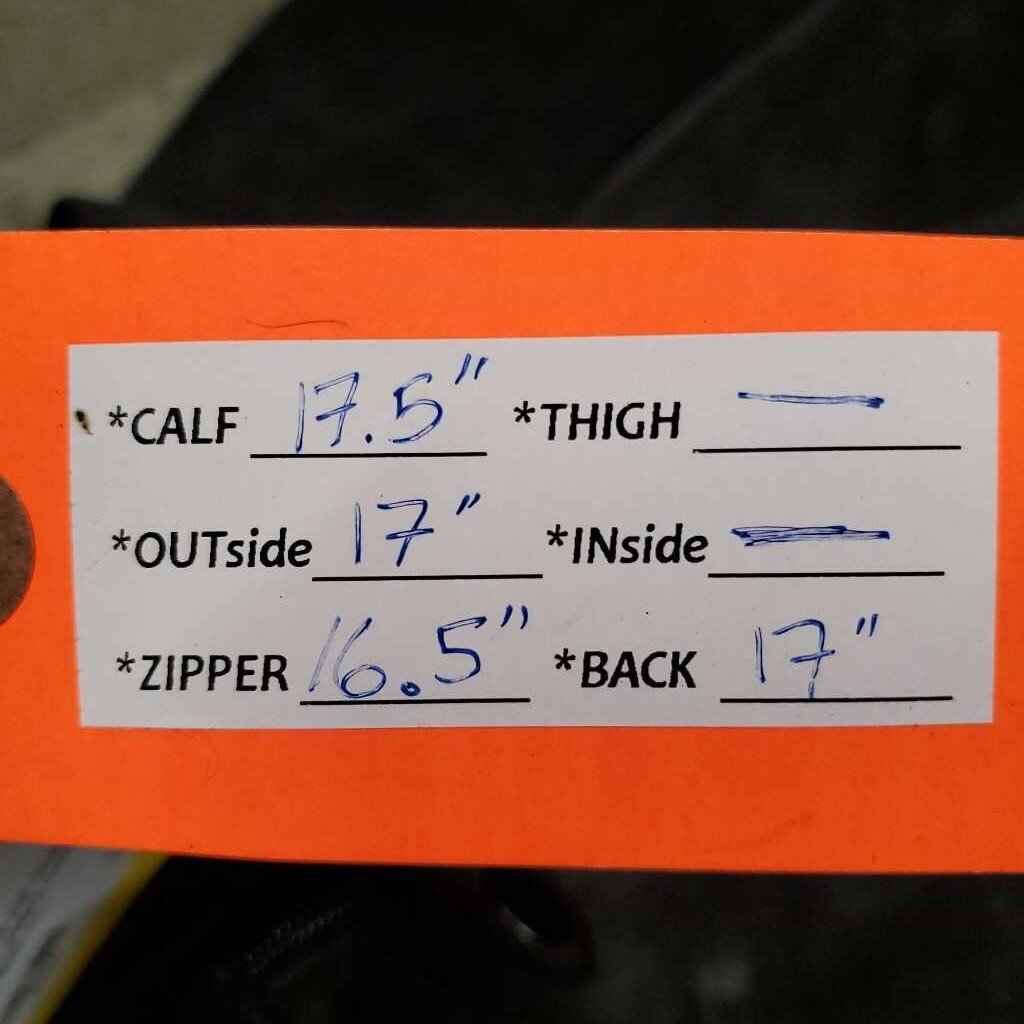 *CALF 17.5" *THIGH —
*OUTside 17" *INside —
*ZIPPER 16.5" *BACK 17"